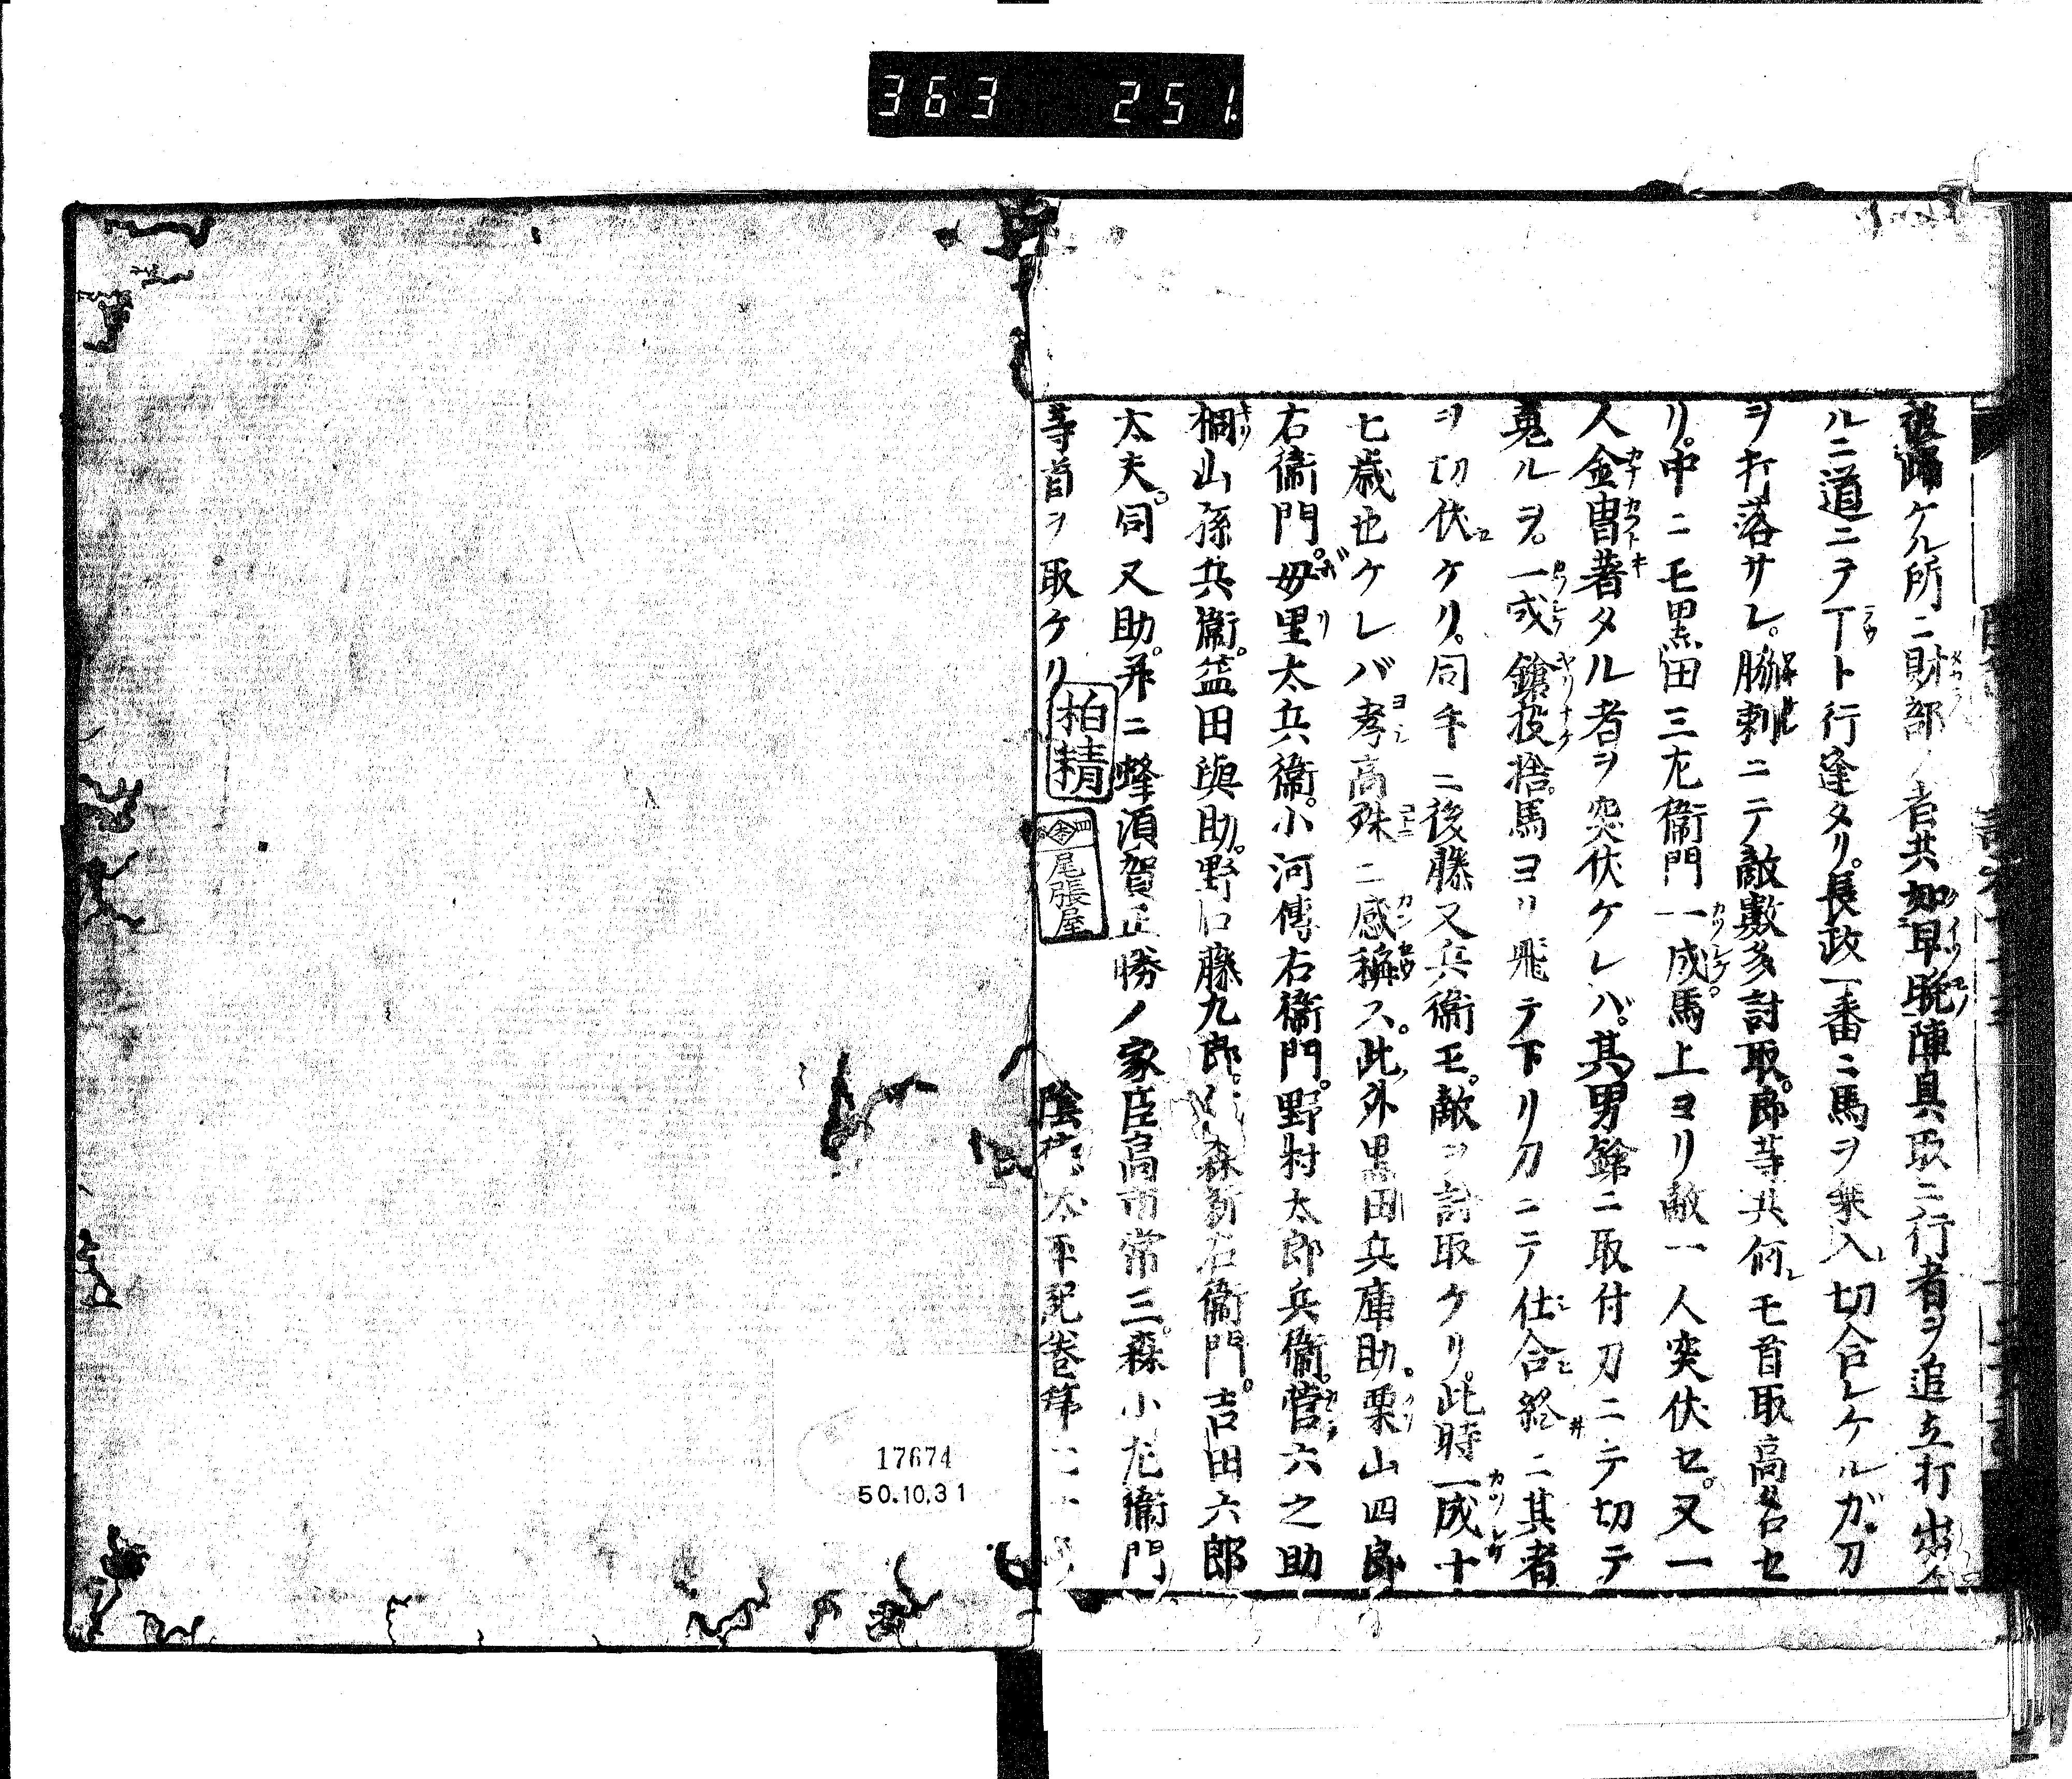 363 251
被歸ケル所ニ財部ノ者共如早晩陣具取ニ行者ヲ追立打出
ルニ道ニテ丁ト行逢タリ。長政一番ニ馬ヲ乗入切合レケルガ。刀
ヲ打落サレ。脇刺ニテ敵數多討取。郎等共何モ首取高名セ
リ。中ニモ黒田三左衞門一成。馬上ヨリ敵一人突伏セ。又一
人金冑著タル者ヲ突伏ケレバ。其男鎗ニ取付刀ニテ切テ
ルヲ。一成鎗投捨。馬ヨリ飛テ下リ刀ニテ仕合終ニ其者
ヲ切伏ケリ。同年ニ後藤又兵衞モ。敵ヲ討取ケリ。此時一成十
七歳也ケレバ孝高殊ニ感稱ス。此外黒田兵庫助。栗山四郎
右衞門。母里太兵衞。小河傳右衞門。野村太郎兵衞。菅六之助
桐山孫兵衞。益田與助。野口藤九郎。森新右衞門。吉田六郎
太夫。同又助。并ニ蜂須賀正勝ノ家臣高市常三。森小左衞門
等首ヲ取ケリ
陰徳太平記巻第
柏精
尾張屋
17674
50.10.31